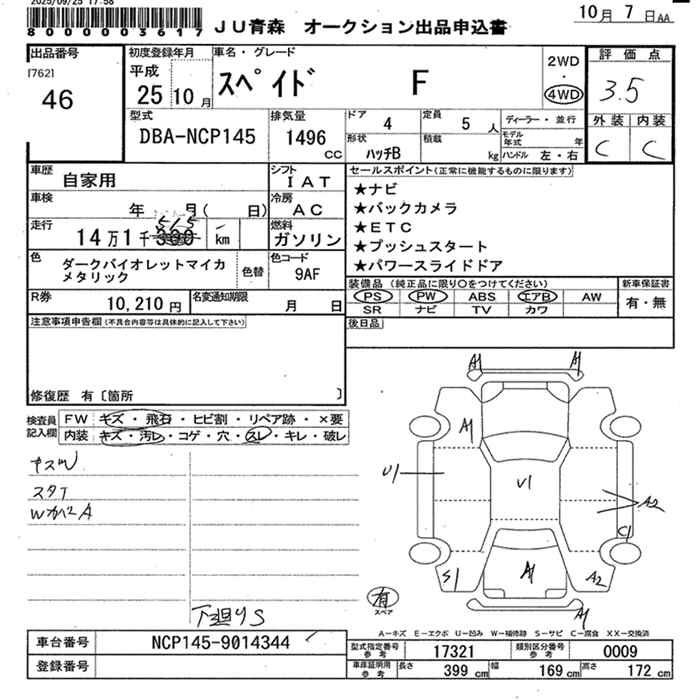 2025/09/25 17:58
8000003617
JU青森 オークション出品申込書
10月 7日AA
出品番号
[762]
46
初度登録年月
平成
25年10月
車名・グレード
スペイド F
2WD
・
4WD
評価点
3.5
外装 内装
C C
型式
DBA-NCP145
排気量
1496
CC
ドア
4
定員
5人
形状
ハッチB
積載
kg
ディーラー・並行
モデル年式 年
ハンドル 左・右
車歴
自家用
シフト
IAT
車検
年 月( 日)
冷房
AC
走行
14万1千300
515
km
燃料
ガソリン
色
ダークバイオレットマイカ
メタリック
色替
色コード
9AF
R券
10,210円
名変通知期限
月 日
セールスポイント(正常に機能するものに限ります)
★ナビ
★バックカメラ
★ETC
★プッシュスタート
★パワースライドドア
装備品(純正品に限り○をつけてください)
PS PW ABS エアB AW
SR ナビ TV カワ
新車保証書
有・無
後日品
注意事項申告欄(不具合内容等は具体的に記入して下さい)
修復歴 有〔箇所 〕
検査員
記入欄
FW キズ・飛石・ヒビ割・リペア跡・×要
内装 キズ・汚レ・コゲ・穴・スレ・キレ・破レ
スタT
WカバーA
下廻りS
A1 A1
A1
U1
U1
A2
C1
S1
A1
A2
A1
有
スペア
A-キズ E-エクボ U-凹み W-補修跡 S-サビ C-腐食 XX-交換済
車台番号
NCP145-9014344
登録番号
型式指定番号
参考
17321
類別区分番号
参考
0009
車庫証明用
参考
長さ
399 cm
幅
169 cm
高さ
172 cm